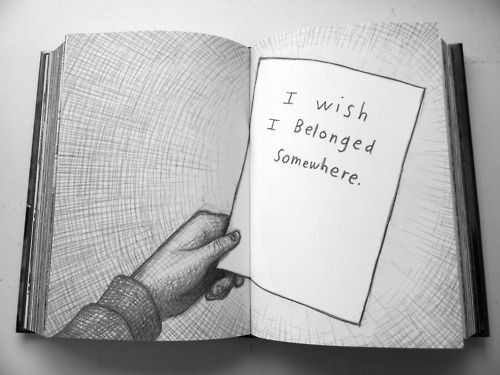 I wish
I Belonged
Somewhere.